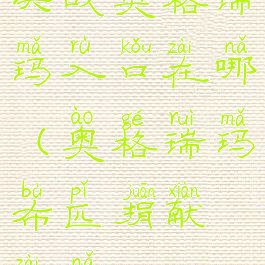 奥格瑞
mǎ rù kǒu zài nǎ
玛入口在哪
ào gé ruì mǎ
（奥格瑞玛
bù pǐ juān xiàn
布匹捐献
zài nǎ